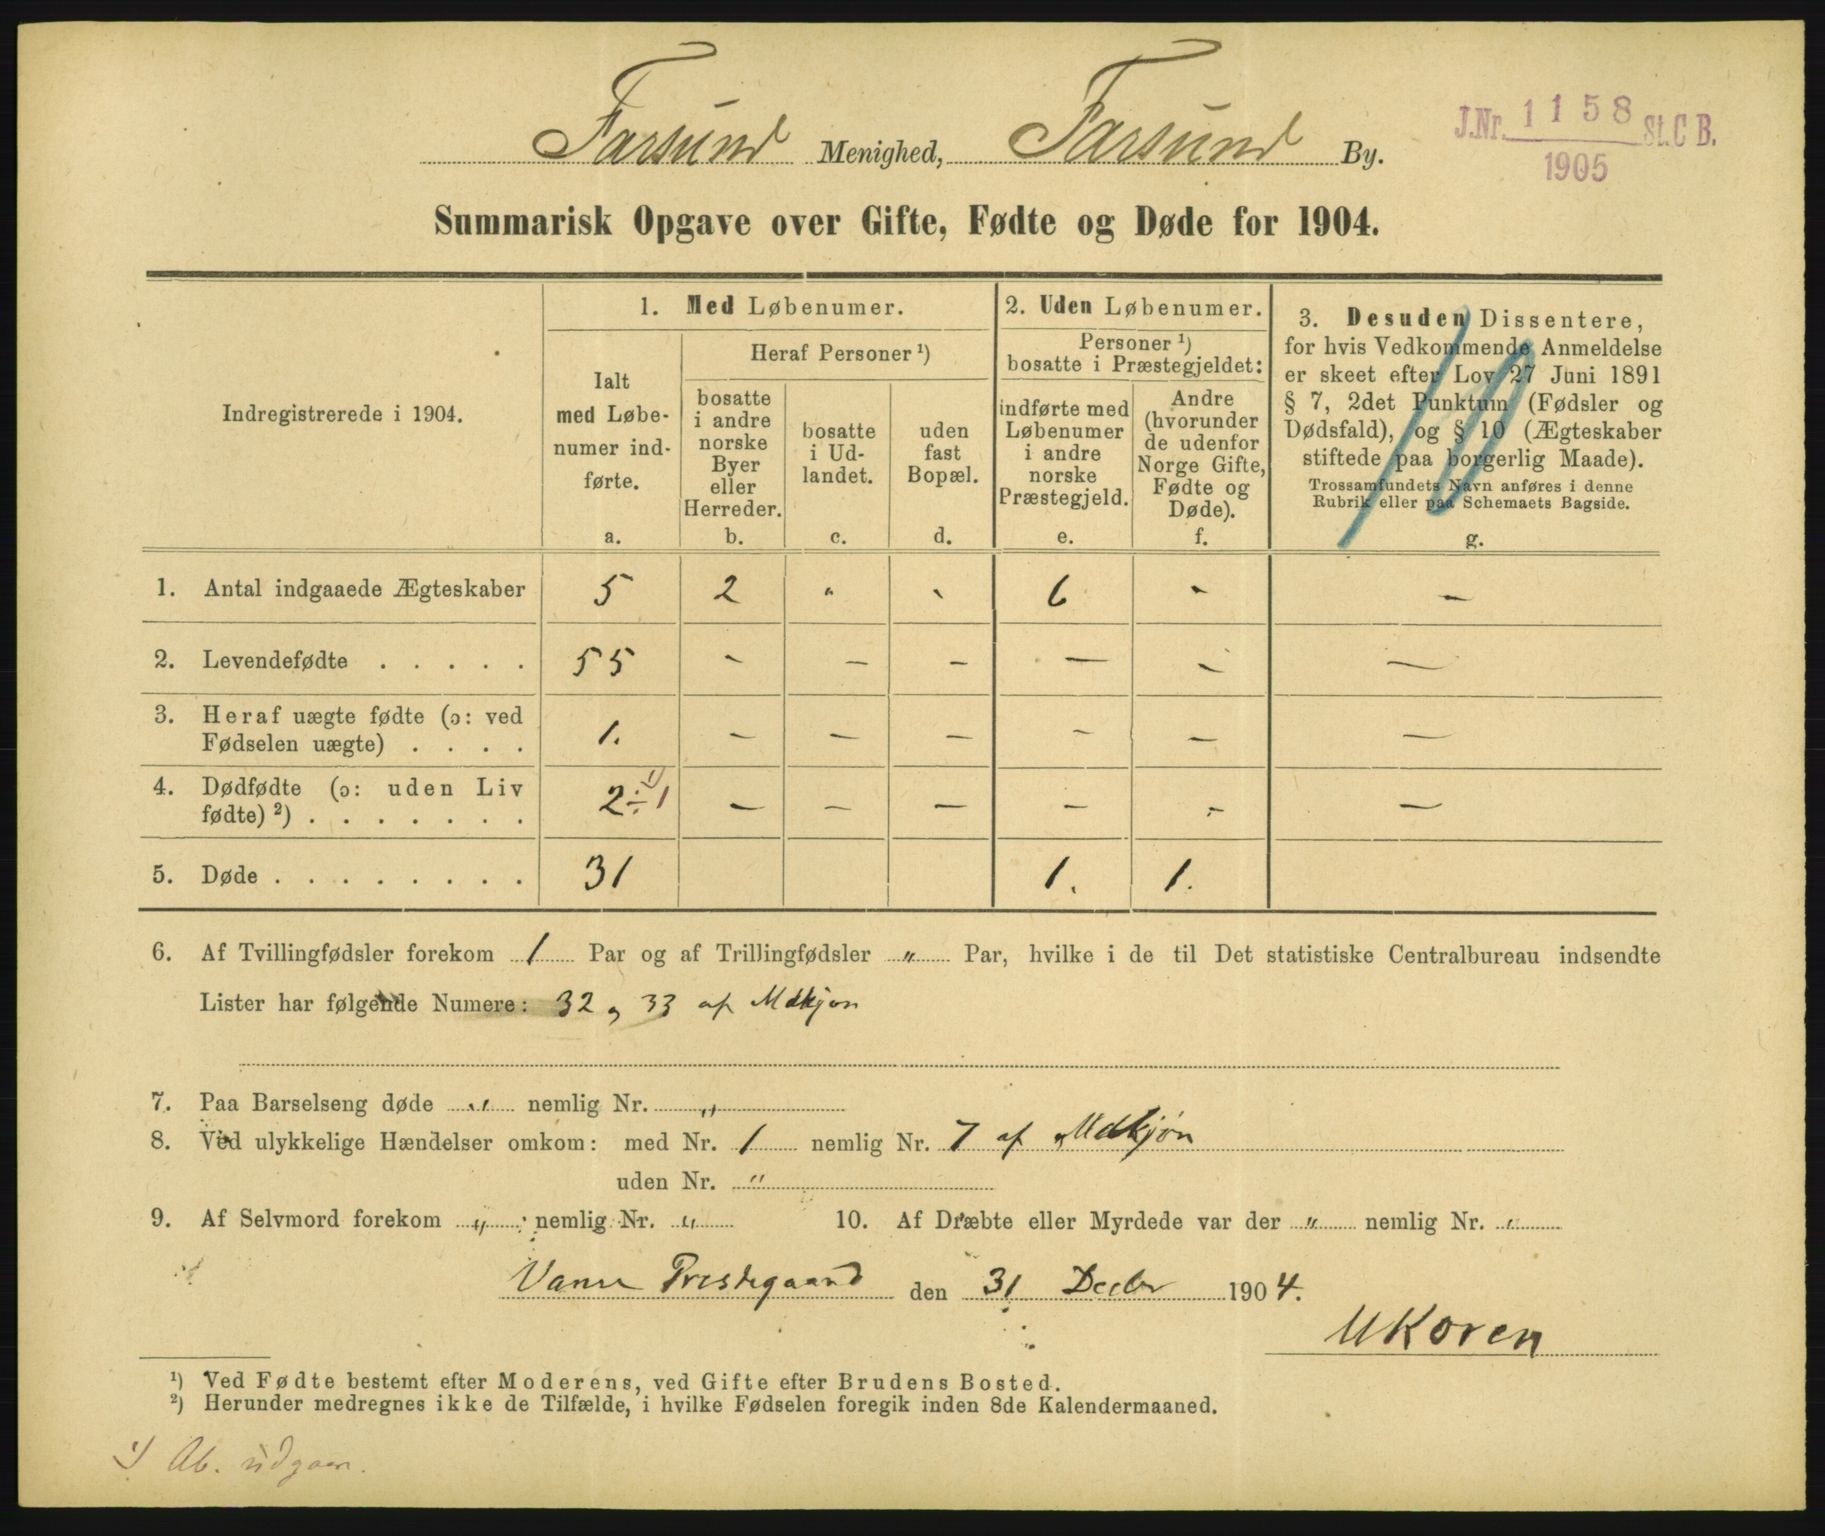 Farsund Menighed, Farsund By.
J.Nr. 1158 St.C B.
1905
Summarisk Opgave over Gifte, Fødte og Døde for 1904.
Indregistrerede i 1904.
1. Med Løbenumer.
Ialt
med Løbe-
numer ind-
førte.
a.
Heraf Personer ¹)
bosatte
i andre
norske
Byer
eller
Herreder.
b.
bosatte
i Ud-
landet.
c.
uden
fast
Bopæl.
d.
2. Uden Løbenumer.
Personer ¹)
bosatte i Præstegjeldet:
indførte med
Løbenumer
i andre
norske
Præstegjeld.
e.
Andre
(hvorunder
de udenfor
Norge Gifte,
Fødte og
Døde).
f.
3. Desuden Dissentere,
for hvis Vedkommende Anmeldelse
er skeet efter Lov 27 Juni 1891
§ 7, 2det Punktum (Fødsler og
Dødsfald), og § 10 (Ægteskaber
stiftede paa borgerlig Maade).
Trossamfundets Navn anføres i denne
Rubrik eller paa Schemaets Bagside.
g.
1. Antal indgaaede Ægteskaber 5 2 " " 6 - -
2. Levendefødte . . . . . 55 - - - - - -
3. Heraf uægte fødte (ɔ: ved
Fødselen uægte) . . . . 1. - - - - - -
4. Dødfødte (ɔ: uden Liv
fødte) ²) . . . . . . . 2 ÷ 1 ¹) - - - - - -
5. Døde . . . . . . . . 31 1. 1.
6. Af Tvillingfødsler forekom 1 Par og af Trillingfødsler " Par, hvilke i de til Det statistiske Centralbureau indsendte
Lister har følgende Numere: 32 og 33 af Mdkjøn
7. Paa Barselseng døde " nemlig Nr. "
8. Ved ulykkelige Hændelser omkom: med Nr. 1 nemlig Nr. 7 af Mdkjøn
uden Nr. "
9. Af Selvmord forekom " nemlig Nr. " 10. Af Dræbte eller Myrdede var der " nemlig Nr. "
Vanse Prestegaard den 31 Decbr 1904.
UKoren
¹) Ved Fødte bestemt efter Moderens, ved Gifte efter Brudens Bosted.
²) Herunder medregnes ikke de Tilfælde, i hvilke Fødselen foregik inden 8de Kalendermaaned.
¹) Ab. udgaar.